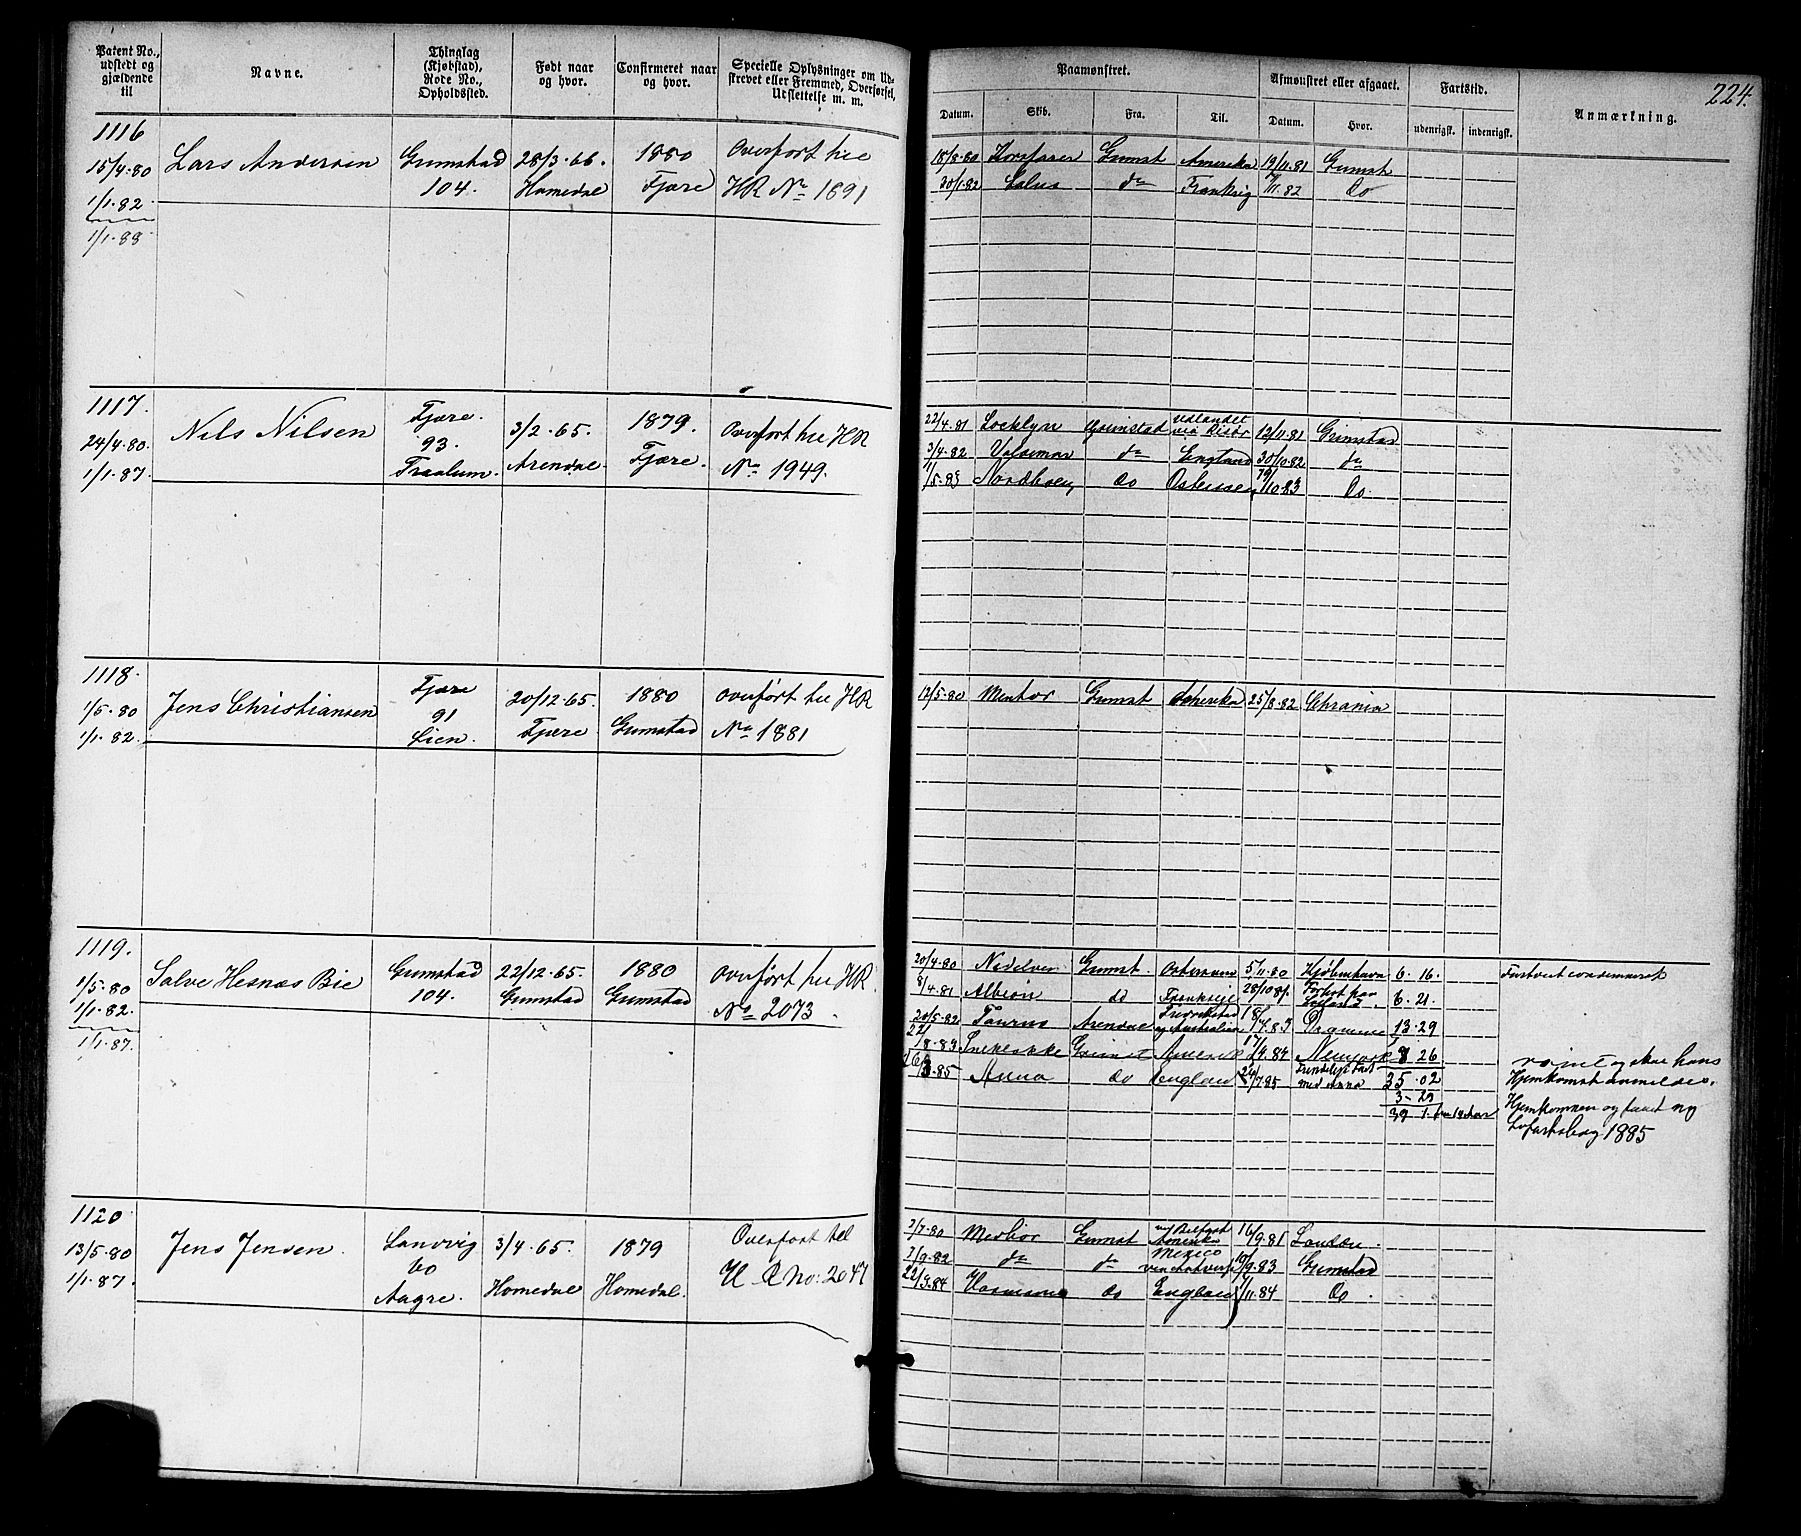 224.
Patent No., udstedt og gjældende til
Navne.
Thinglag (Kjøbstad), Rode No., Opholdssted.
Født naar og hvor.
Confirmeret naar og hvor.
Specielle Oplysninger om Udskrevet eller Fremmed, Overførsel, Udslettelse m. m.
Paamønstret.
Afmønstret eller afgaaet.
Fartstid.
Anmærkning.
Datum.
Skib.
Fra.
Til.
Datum.
Hvor.
udenrigsk.
indenrigsk.
1116
15/4.80
1/1.82
1/1.88
Lars Andersen
Grimstad
104.
28/3.66.
Homedal
1880
Fjære
Overført til
HR No 1891
18/8.80 Korsfarer Grimst Amerika 19/11.81 Grimst
30/1.82 do Frankrig /11.82 Do
1117.
24/4.80.
1/1.87.
Nils Nilsen
Fjære.
93.
Traalum.
3/2.65.
Arendal
1879.
Fjære.
Overført til HR
No 1949.
22/4.81 Locklyn Grimstad Udlandet via Risør 12/11.81 Grimstad
3/4.82 Valdemar do England 30/10.82 do
11/5.83 do Østersøen /10.83 Do.
1118.
1/5.80
1/1.82.
Jens Christiansen
Fjære
91
Lien.
20/12.65.
Fjære
1880
Grimstad
overført til HR
No 1881
12/5.80 Mentor Grimst Amerika 25/8.82 Chrania
1119.
1/5.80
1/1.82.
1/1.87.
Salve Hesnæs Bie
Grimstad
104.
22/12.65.
Grimstad
1880
Grimstad
overført til HR.
No 2073.
20/4.80 Grimst. Østersøen 5/11.80 Kjøbenhavn 6.16.
8/4.81 Albion do Frankrige 28/10.81. 6.21.
20/5.82 Taurus Arendal Fredrikstad og Australien 18/7.83 Dramme 13.29
22/8.83 Grimst Amerik 17/9.84 Newyork 8 26
3.85 Anna do England 24/7.85 med Anna 35.02
3-29
39 1.
rømt og skal hans
Hjemkomst anmeldes.
Hjemkommen og faaet ny
Søfartsbog 1885
1120
13/5.80
1/1.87.
Jens Jensen.
Landvig
60
Aagre.
3/4.65.
Homedal
1879
Homedal.
Overført til
H R No: 2047
2/7.80 Grimst Belfast Amerika 16/9.81 London.
2/9.82 do do Mexico via Antwerp 10/9.83 Grimstad
22/3.84 do England /11.84 Do.